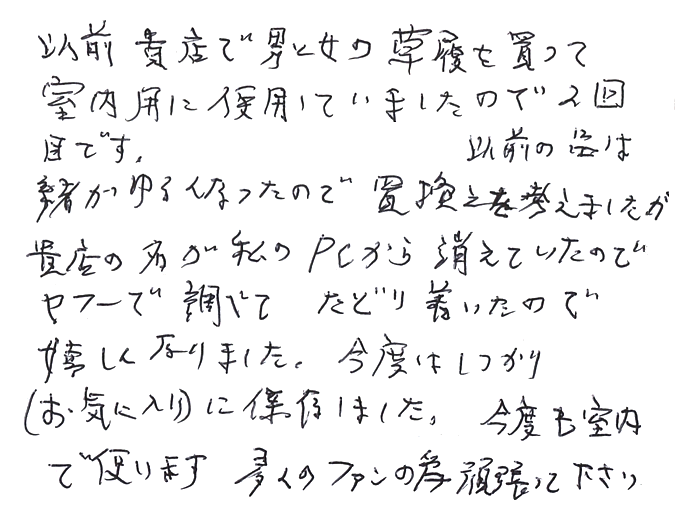 以前 貴店で男と女の草履を買って
室内用に使用していましたので2回
目です。 以前の品は
鼻緒がゆるくなったので 買換えを考えましたが
貴店の名が私のPCから消えていたので
ヤフーで調べて たどり着いたので
嬉しくなりました。今度はしっかり
(お気に入り)に保存しました。今度も室内
で使います 多くのファンの為頑張って下さい